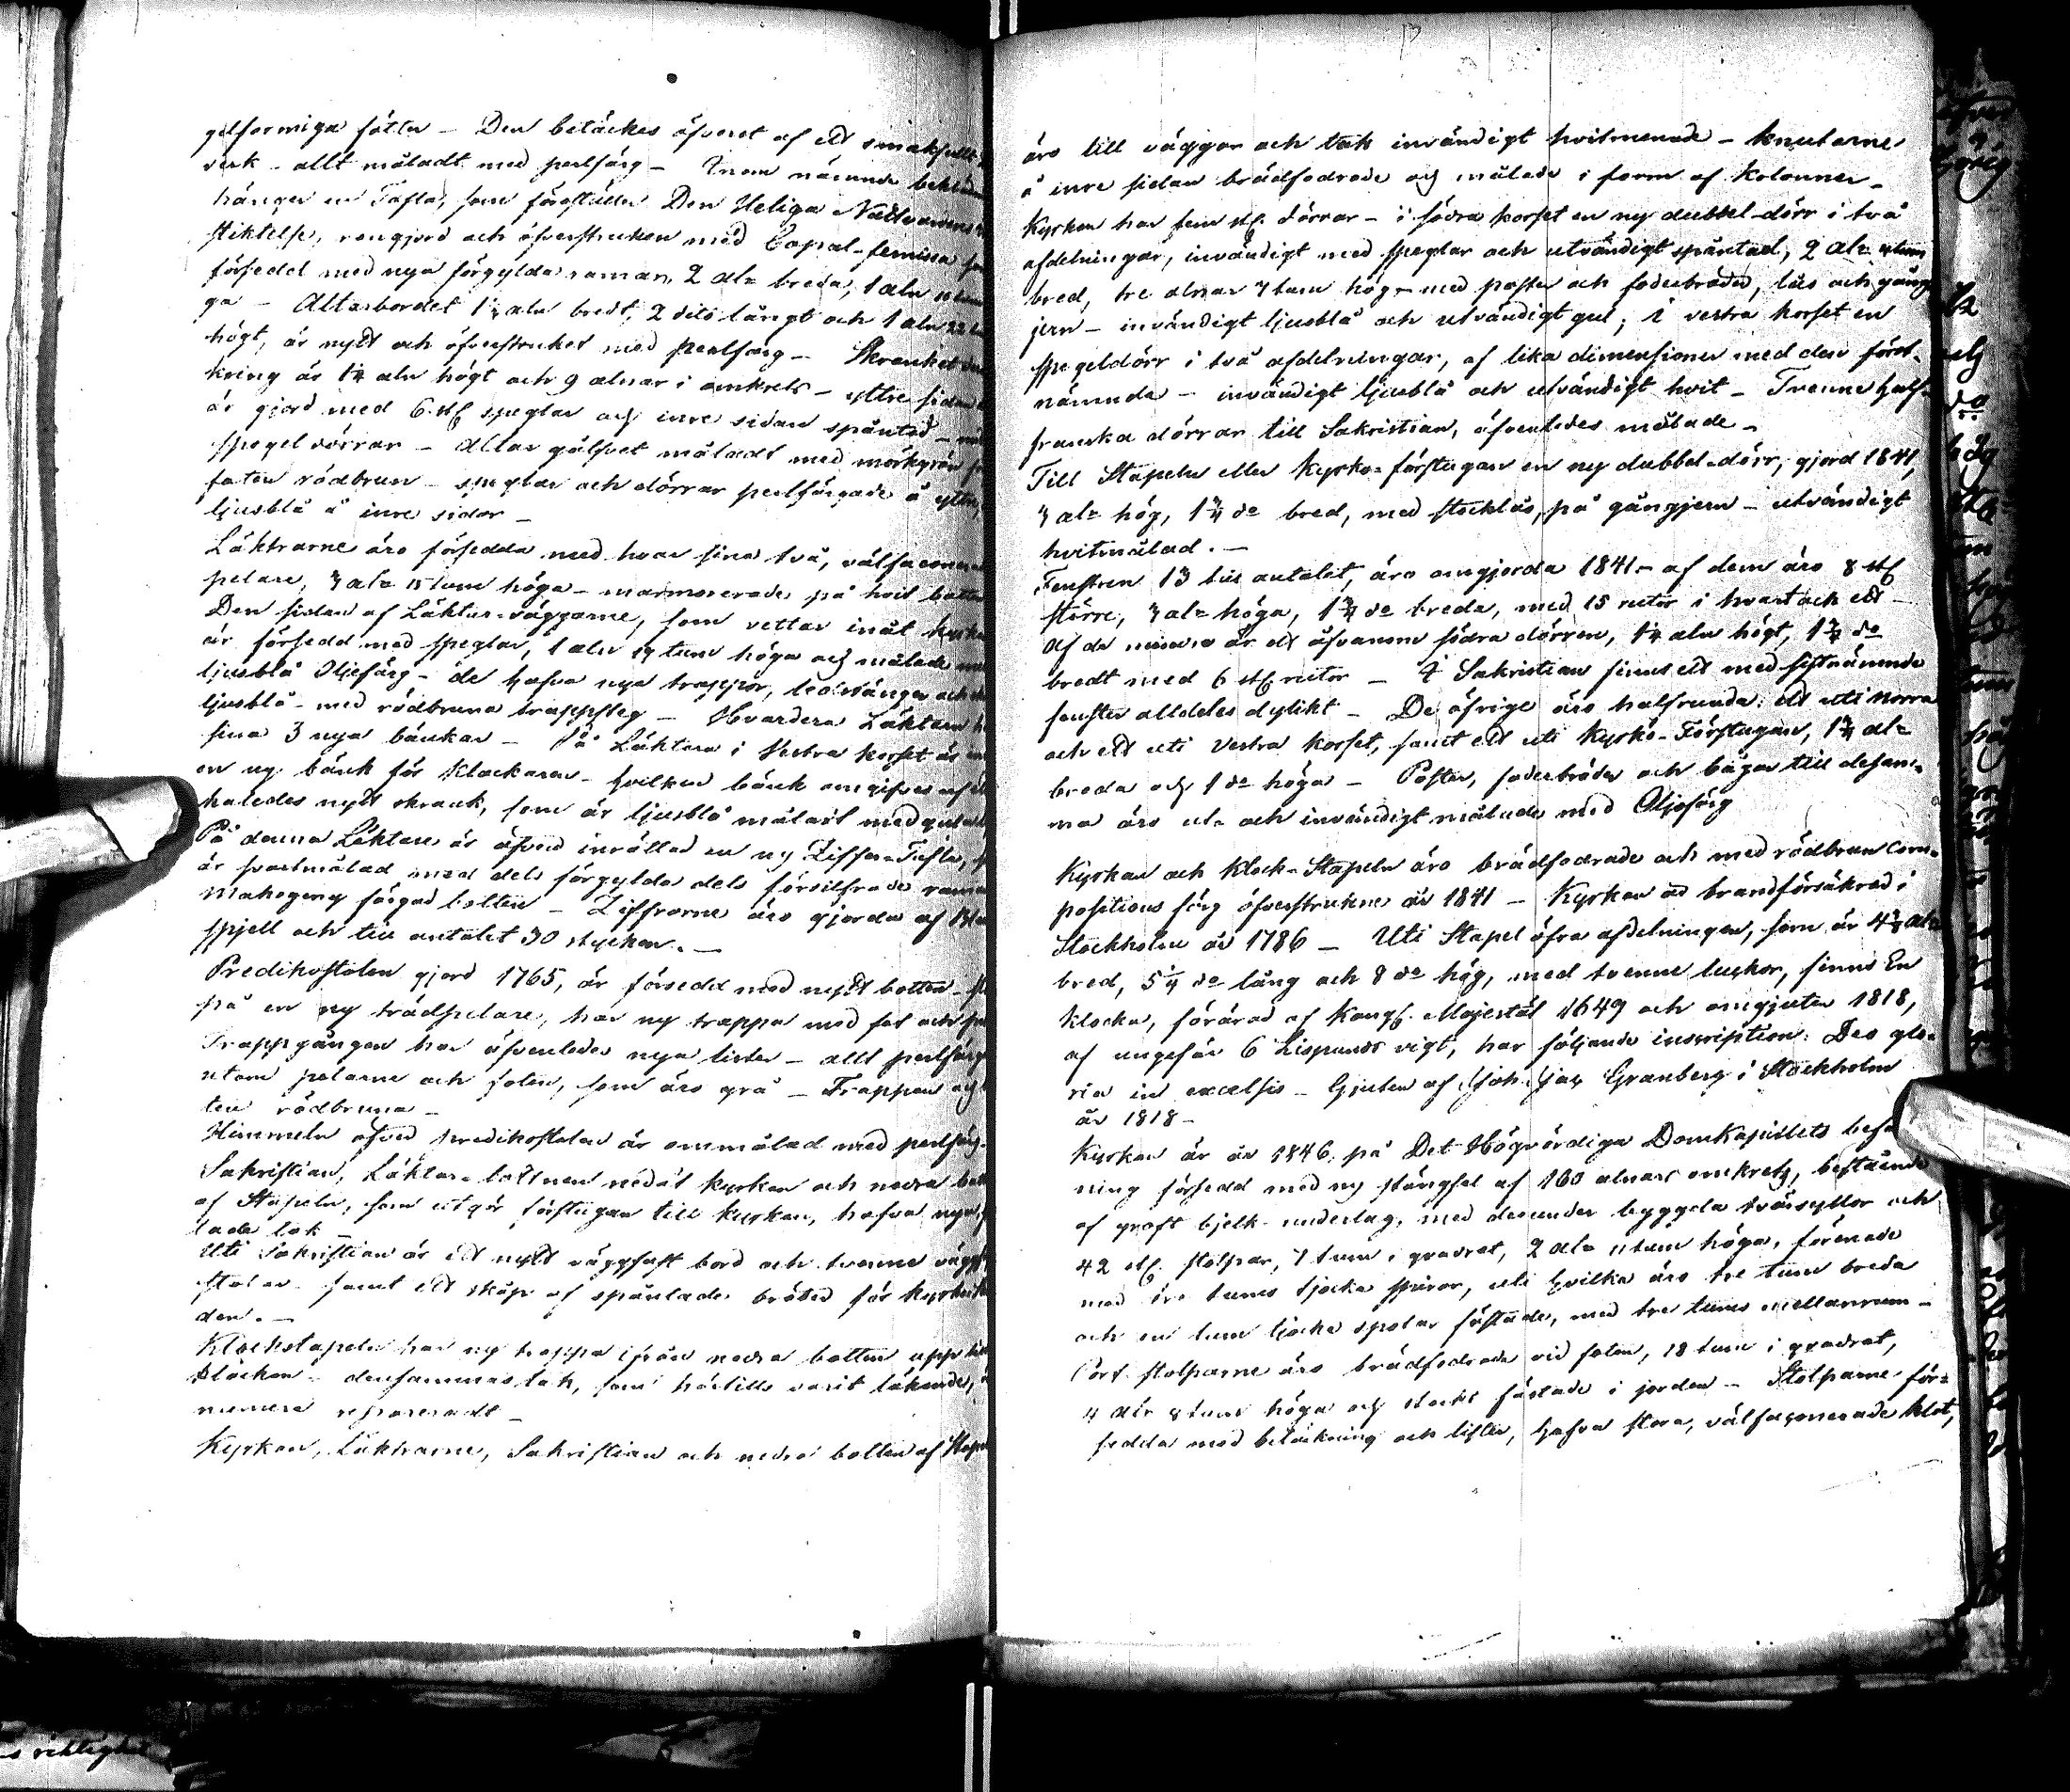 gelformiga fötter - Den betäckes öfverst af ett smakfullt
verk - allt måladt med perlfärg - Inom nämnde
hänger en Tafla, som föreställer Den Heliga Nattvardens
stiktelse, rengjord och öfverstruken med Copal-fernissa
försedd med nya förgylda ramar, 2 aln breda, 1 aln
ga - Altarbordet 1½ aln bredt, 2 dito långt och 1 aln 22
högt, är nytt och öfverstruket med perlfärg - Skranket
kring är 1¼ aln högt och 9 alnar i omkrets - yttre sidan
är gjord med 6 st speglar och inre sidan spåntad -
spegel dörrar - Altar gålfvet måladt med mörkgrön
foten rödbrun - speglar och dörrar perlfärgade å yttre,
ljusblå å inre sidor -
Läktrarne äro försedda med hvar sina två, välfaconerade
pelare, 3 aln 15 tum höga - marmorerade på hvit botten
Den sidan af Läktar-väggarne, som vettar inåt kyrkan
är försedd med speglar, 1 aln 19 tum höga och målade med
ljusblå Oljefärg - de hafva nya trappor, ledstänger och
ljusblå - med rödbruna trappsteg - Hvardera Läktaren
sina 3 nya bänkar - På Läktaren i Vestra korset är
en ny bänk för Klockaren - hvilken bänk omgifves af
haledes nytt skrank, som är ljusblå måladt med gula
På denna Läktare är äfven inrättad en ny Ziffer-Tafla,
är svartmålad med dels förgylda dels försilfrade ramar
Mahogeny färgad botten - Ziffrorne äro gjorda af
spjell och till antalet 30 stycken. -
Predikostolen gjord 1765, är försedd med nytt botten -
på en ny trädpelare, har ny trappa med fot och
Trappgången har äfvenledes nya lister - allt perlfärg
utom pelarne och foten, som äro grå - Trappan och
ten rödbruna -
Himmeln öfver predikostolen är ommålad med perlfärg.
Sakristian, Läktare bottnen nedåt kyrkan och nedra botten
af Stapeln, som utgör förstugan till kyrkan, hafva nya
lade tak -
Uti Sakristian är ett nytt väggfast bord och tvenne vägg
stolar - samt ett skåp af spåntade bräder för kyrkoskru
den. -
Klockstapeln har ny trappa ifrån nedra botten upp till
klockan - densammas tak, som härtills varit läkande,
numera repareradt -
Kyrkan, Läktrarne, Sakristian och nedra botten af Stapeln
äro till väggar och tak invändigt hvitmenade - knutarne
å inre sidan brädfodrade och målade i form af Kolonner -
Kyrkan har fem st. dörrar - i södra korset en ny dubbel-dörr i två
afdelningar, invändigt med speglar och utvändigt spåntad, 2 aln 4 tum
bred, tre alnar 7 tum hög - med poster och foderbräder, lås och gång
jern - invändigt ljusblå och utvändigt gul; i vestra korset en
spegeldörr i två afdelningar, af lika dimensioner med den först-
nämnda - invändigt ljusblå och utvändigt hvit - Tvenne half-
franska dörrar till Sakristian, äfvenledes målade -
Till Stapeln eller kyrko-förstugan en ny dubbel-dörr, gjord 1841,
3 aln hög, 1¾ do bred, med stocklås, på gångjern - utvändigt
hvitmålad. -
Fenstren 13 till antalet, äro omgjorda 1841 - af dem äro 8 st
större, 3 aln höga, 1¾ do breda, med 15 rutor i hvart och ett -
Af de mindre är ett ofvanom södra dörren, 1¼ aln högt, 1¾ do
bredt med 6 st rutor - I Sakristian finns ett med sistnämnde
fenster alldeles dylikt - De öfrige äro halfrunda: ett uti norra
och ett uti Vestra korset, samt ett uti kyrko-Förstugan, 1¾ aln
breda och 1 do höga - Poster, foderbräder och bågar till desam-
ma äro ut- och invändigt målade med Oljefärg
Kyrkan och klock-Stapeln äro brädfodrade och med rödbrun Com-
positions färg öfverstrukne år 1841 - Kyrkan är brandförsäkrad i
Stockholm år 1786 - Uti Stapel öfra afdelningen, som är 4¾ aln
bred, 5¼ do lång och 8 do hög, med tvenne luckor, finns En
klocka, förärad af Kongl. Majestät 1649 och omgjuten 1818,
af ungefär 6 Lispunds vigt, har följande inscription: Deo glo-
ria in excelsis - Gjuten af Joh. Jac Granberg i Stockholm
år 1818 -
Kyrkan är år 1846 på Det Högvördiga DomKapitlets befa
ning försedd med ny stängsel af 160 alnars omkrets, bestående
af groft bjelk-underlag, med derunder byggda tvärsyllor och
42 st. stolpar, 7 tum i qvadrat, 2 aln 11 tum höga, förenade
med tre tums tjocka spiror, uti hvilka äro tre tum breda
och en tum tjocka spolar fästade, med tre tums mellanrum -
Port stolparne äro brädfodrade vid foten, 18 tum i qvadrat,
4 aln 8 tum höga och starkt fästade i jorden - Stolparne för-
sedda med betäckning och lister, hafva stora, välfaçonerade klot,